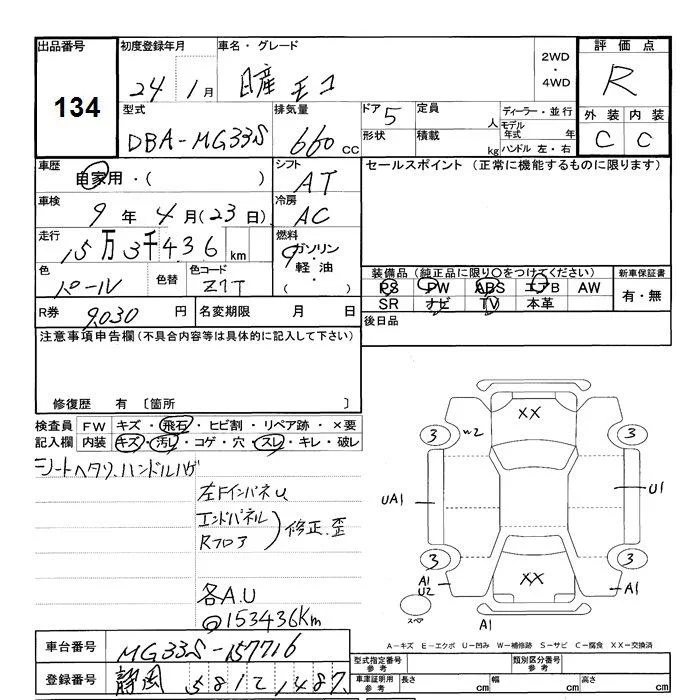 出品番号 134
初度登録年月 24年 1月
車名・グレード 日産 モコ
2WD・4WD
評価点 R
外装 C 内装 C
型式 DBA-MG33S
排気量 660 CC
ドア 5 定員 人
形状 積載 kg
ディーラー・並行
モデル年式 年
ハンドル 左・右
車歴 自家用・( )
シフト AT
セールスポイント (正常に機能するものに限ります)
車検 9年 4月(23日)
冷房 AC
走行 15万3千436 km
燃料 ガソリン・軽油・( )
色 パール 色替 色コード Z7T
装備品 (純正品に限り○をつけてください) 新車保証書
PS PW ABS エアB AW 有・無
SR ナビ TV 本革
R券 9,030 円 名変期限 月 日
後日品
注意事項申告欄 (不具合内容等は具体的に記入して下さい)
修復歴 有 〔箇所 〕
検査員 FW キズ・飛石・ヒビ割・リペア跡・×要
記入欄 内装 キズ・汚レ・コゲ・穴・スレ・キレ・破レ
シートヘタリ、ハンドルハゲ
左FインパネU
エンドパネル
Rフロア
修正.歪
各A.U
@153436Km
XX
3 W2 3
UA1 U1
3 3
A1
U2
XX
A1
スペア
A1
A-キズ E-エクボ U-凹み W-補修跡 S-サビ C-腐食 XX-交換済
車台番号 MG33S-157716
登録番号 静岡 581 い 1487
型式指定番号 参考 類別区分番号 参考
車庫証明用 参考 長さ cm 幅 cm 高さ cm